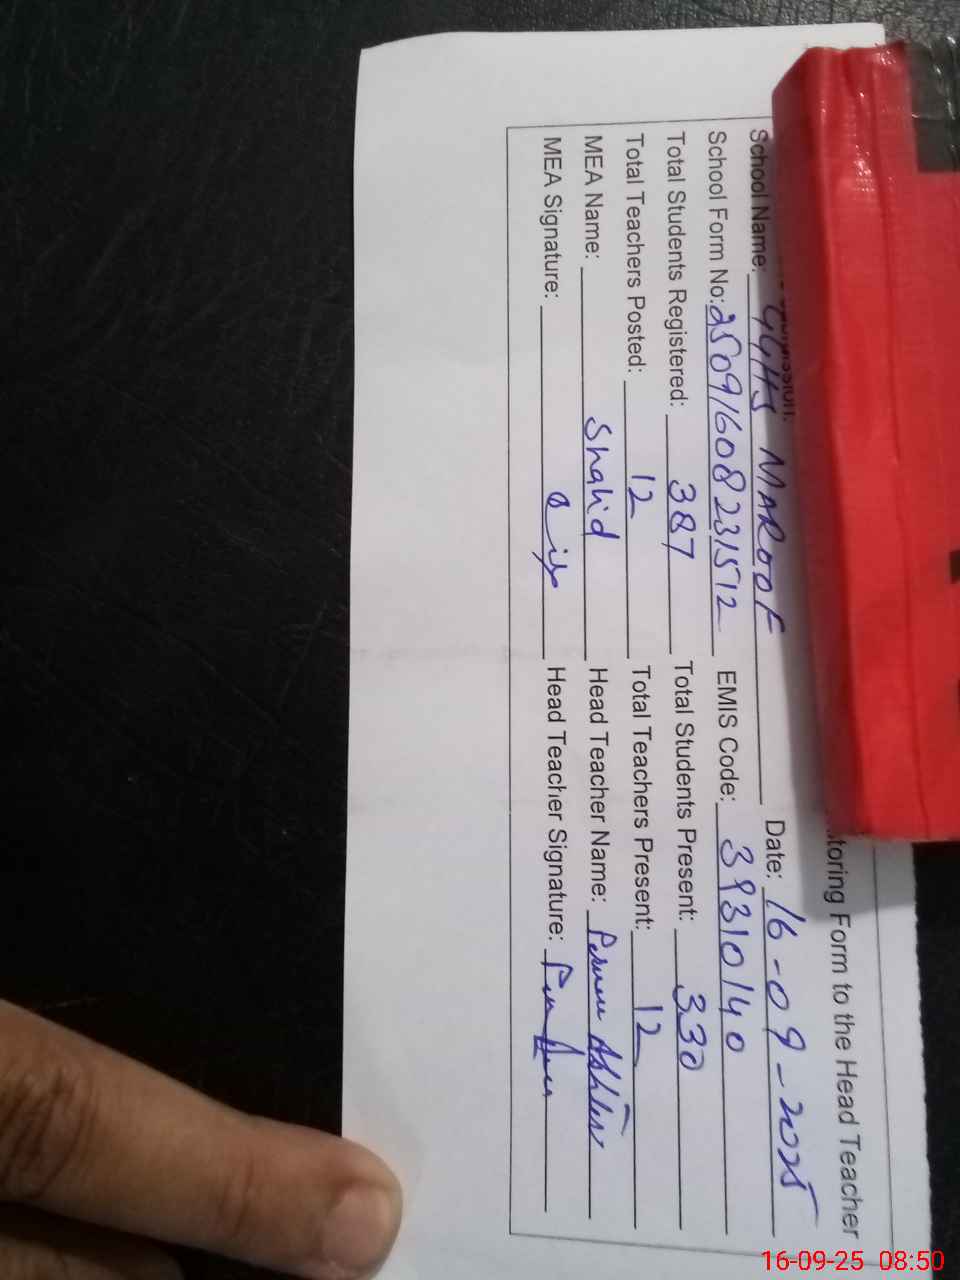 toring Form to the Head Teacher
School Name: GGHS MAROOF Date: 16-09-2025
School Form No: 25091608231512 EMIS Code: 39310140
Total Students Registered: 387 Total Students Present: 330
Total Teachers Posted: 12 Total Teachers Present: 12
MEA Name: Shahid Head Teacher Name:
MEA Signature: Head Teacher Signature:
16-09-25 08:50